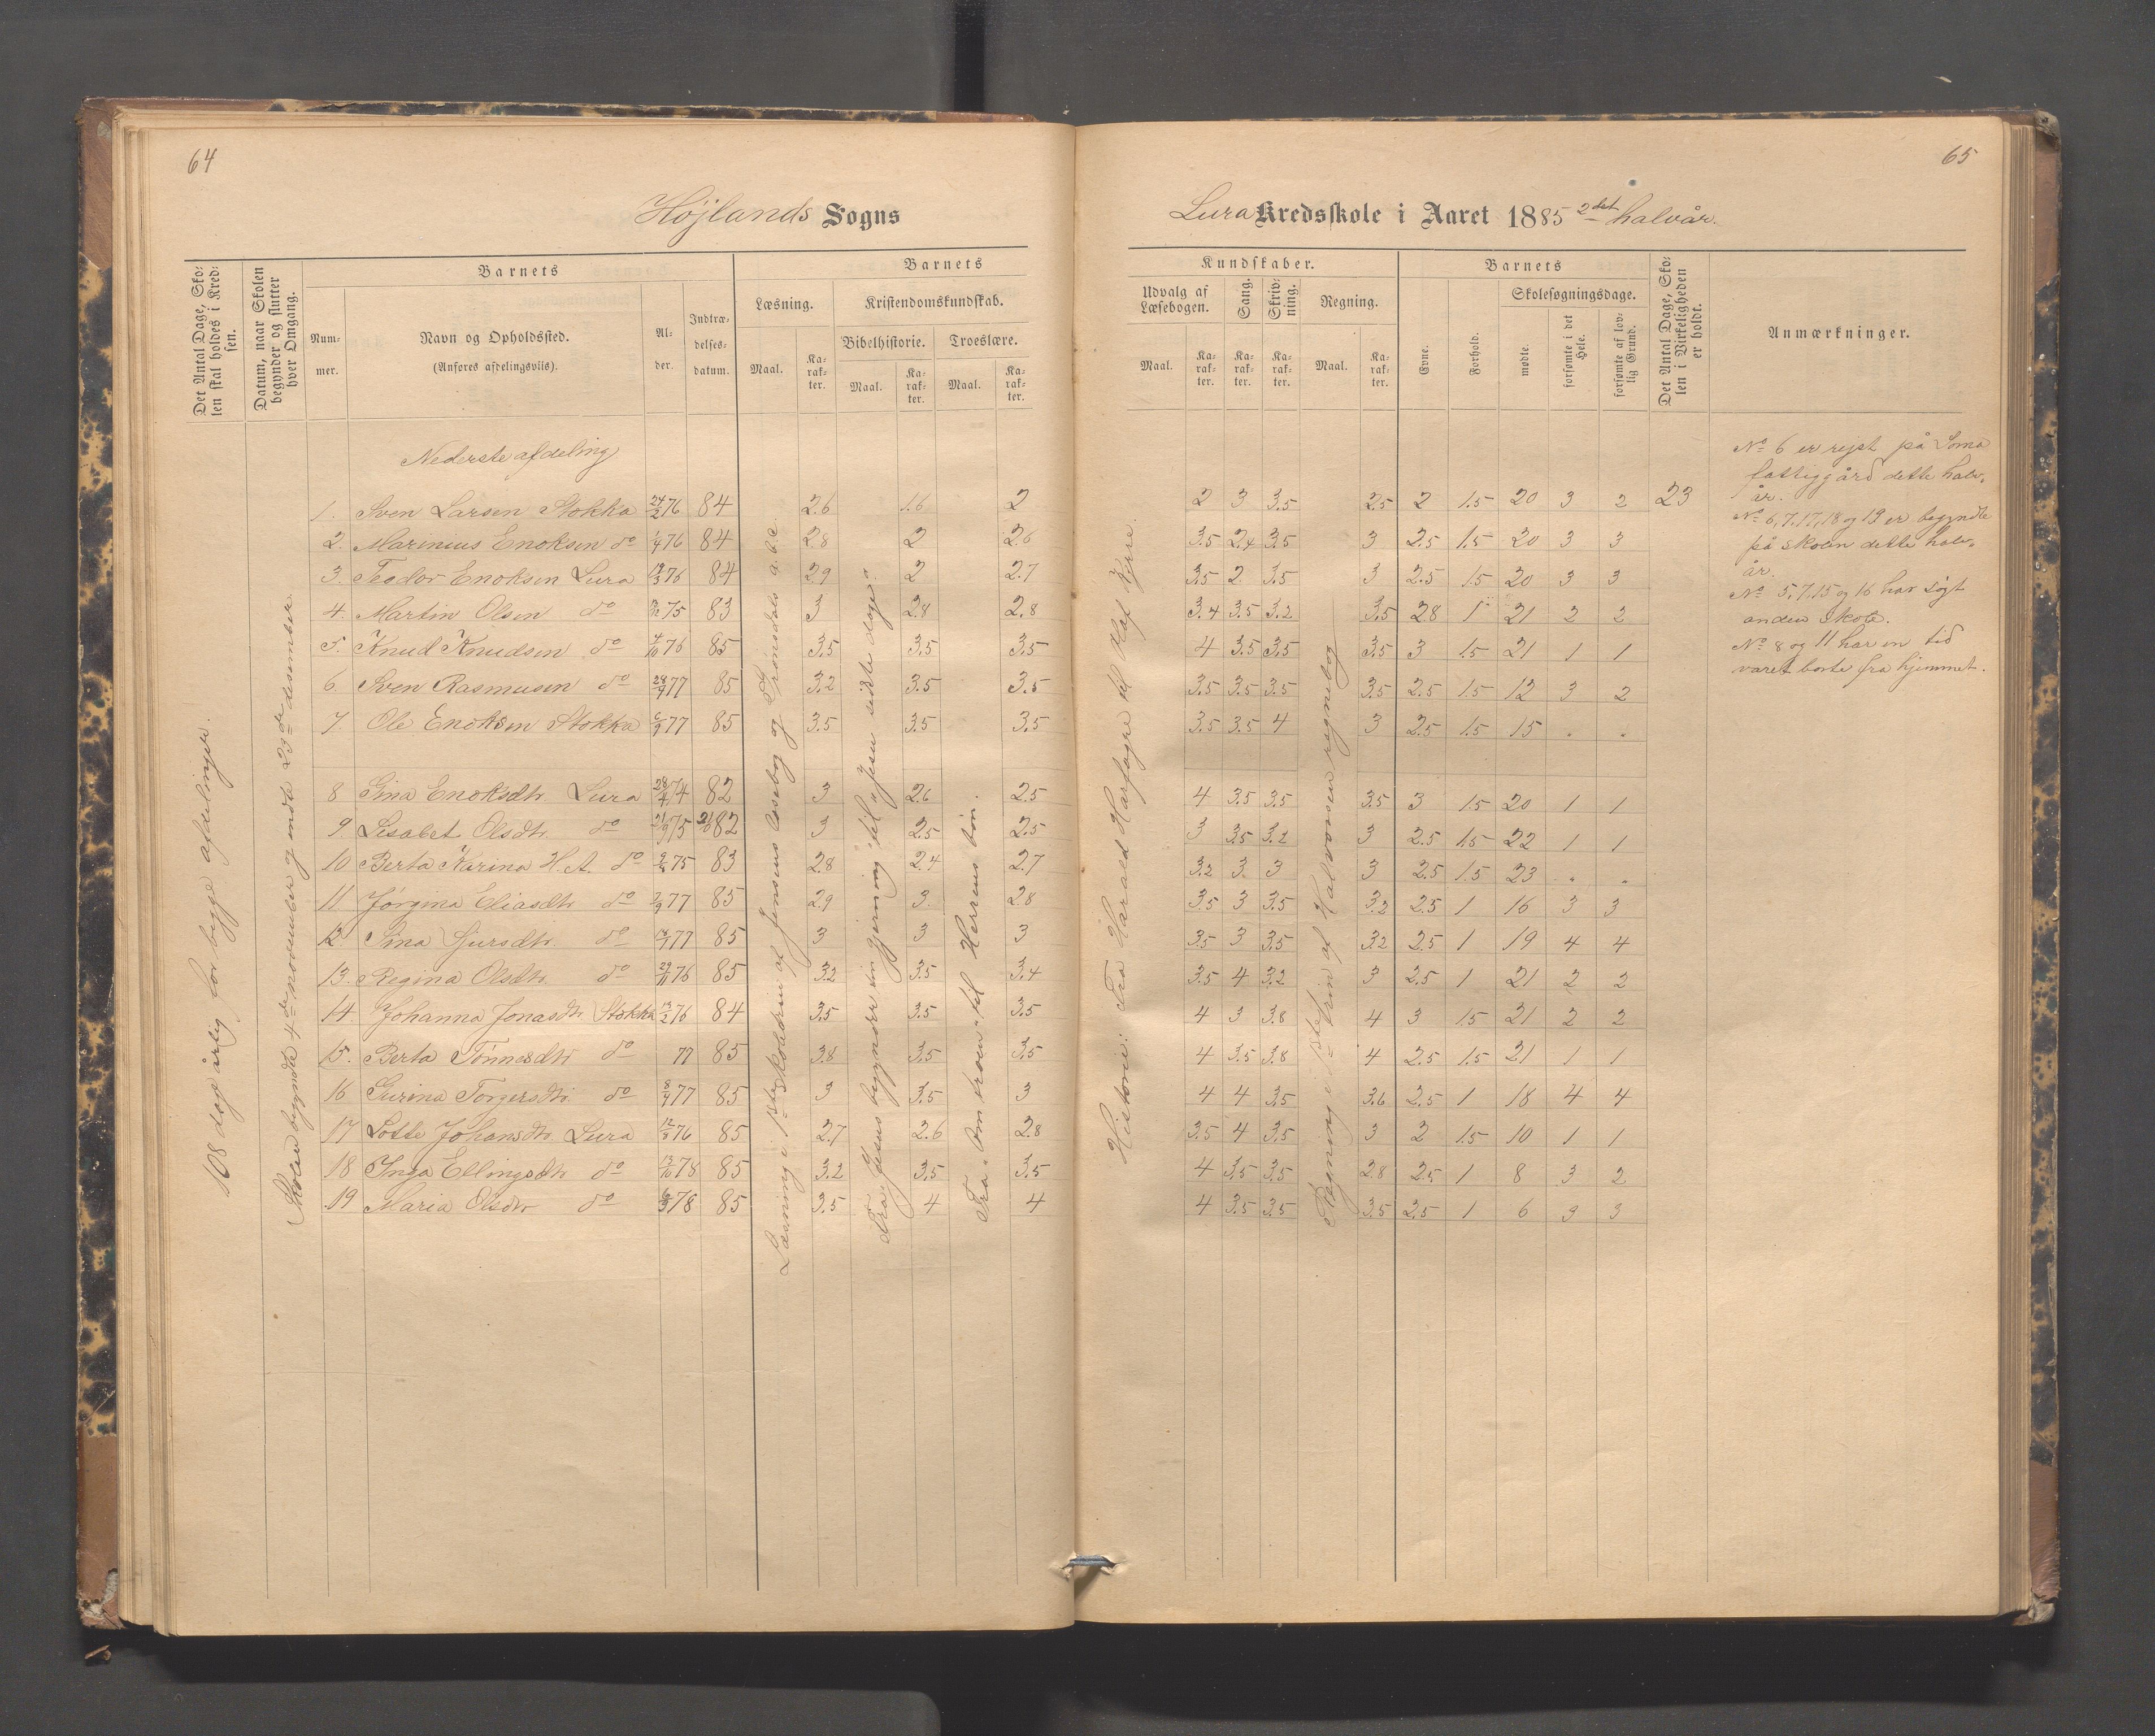 64
Højlands Sogns
Det Antal Dage, Sko-
len skal holdes i Kred-
sen.
Datum, naar Skolen
begynder og slutter
hver Omgang.
Barnets
Num-
mer.
Navn og Opholdssted.
(Anføres afdelingsviis).
Al-
der.
Indtræ-
delses-
datum.
Barnets
Læsning.
Maal.
Ka-
rak-
ter.
Kristendomskundskab.
Bibelhistorie.
Maal.
Ka-
rak-
ter.
Troeslære.
Maal.
Ka-
rak-
ter.
108 dag årlig for begge afdelinger.
Skolen begyndte 4de november og endte 23de desember.
Læsning i 1ste skoletrin af Jensens læsebog og a.b.c.
Fra Jesus begynder sin gjerning til Jesu sidste dage.
Fra Om troen til Herrens bøn.
Nederste afdeling
1. Sven Larsen Stokka 24/2 76 84 2.6 1.6 2
2. Marinius Enoksen do 76 84 2.8 2 2.6
3. Teodor Enoksen Lura 76 84 2.9 2 2.7
4. Martin Olsen do 75 83 3 2.8 2.8
5. Knud Knudsen do 4/10 76 85 3.5 3.5 3.5
6. Sven Rasmusen do 77 85 3.2 3.5 3.5
7. Ole Enoksen Stokka 77 85 3.5 3.5 3.5
8 Gina Enoksdtr. Lura 74 82 3 2.6 2.5
9. Lisabet Olsdtr. do 75 82 3 2.5 2.5
10 Berta Karina H.A. do 75 83 2.8 2.4 2.7
11. Jørgina Eliasdtr do 77 85 2.9 3. 2.8
12. Sina Sjursdtr. do 77 85 3 3 3
13. Regina Olsdtr. do 76 85 3.2 3.5 3.4
14 Johanna Jonasdtr. Stokka 13/2 76 84 3.5 3.5 3.5
15. Berta Tønnesdtr do 77 85 3.8 3.5 3.5
16 Gurina Torgersdtr. do 77 85 3 3.5 3
17 Lotte Johansdtr. Lura 76 85 2.7 2.6 2.8
18 Inga Ellingsdtr do 78 85 3.2 3.5 3.5
19 Maria Olsdtr do 78 85 3.5 4 4
65
Lura Kredsskole i Aaret 1885 2det halvår.
Kundskaber.
Udvalg af
Læsebogen.
Maal.
Ka-
rak-
ter.
Sang.
Ka-
rak-
ter.
Skriv-
ning.
Ka-
rak-
ter.
Regning.
Maal.
Ka-
rak-
ter.
Barnets
Evne.
Forhold.
Skolesøgningsdage.
mødte.
forsømte i det
Hele.
forsømte af lov-
lig Grund.
Det Antal Dage, Sko-
len i Virkeligheden
er holdt.
Anmærkninger.
Historie: Fra Harald Harfagre til
Regning i 1ste trin af Halvorsens regnebog
2 3 3.5 2.5 2 1.5 20 3 2 23
3.5 2.4 3.5 3 2.5 1.5 20 3 3
3.5 2 3.5 3 2.5 1.5 20 3 3
3.4 3.5 3.2 3.5 2.8 1 21 2 2
4 3.5 3.5 3.5 3 1.5 21 1 1
3.5 3.5 3.5 3.5 2.5 1.5 12 3 2
3.5 3.5 4 3 2.5 1.5 15 . .
4 3.5 3.5 3.5 3 1.5 20 1 1
3 3.5 3.2 3 2.5 1.5 22 1 1
3.2 3. 3 3 2.5 1.5 23 . .
3.5 3 3.5 3.2 2.5 1 16 3 3
3.5 3 3.5 3.2 2.5 1 19 4 4
3.5 4 3.2 3 2.5 1 21 2 2
4 3 3.8 4 3 1.5 21 2 2
4 3.5 3.8 4 2.5 1.5 21 1 1
4 4 3.5 3.6 2.5 1 18 4 4
3.5 4 3.5 3 2 1.5 10 1 1
4 3.5 3.5 2.8 2.5 1 8 3 2
4 3.5 3.5 3.5 2.5 1 6 3 3
No 6 er rejst på Soma
fattiggård dette halv-
år.
No 6, 7, 17, 18 og 19 er begyndte
på skolen dette halv-
år.
No 5, 7, 15 og 16 har søgt
anden skole.
No 8 og 11 har en tid
været borte fra hjemmet.